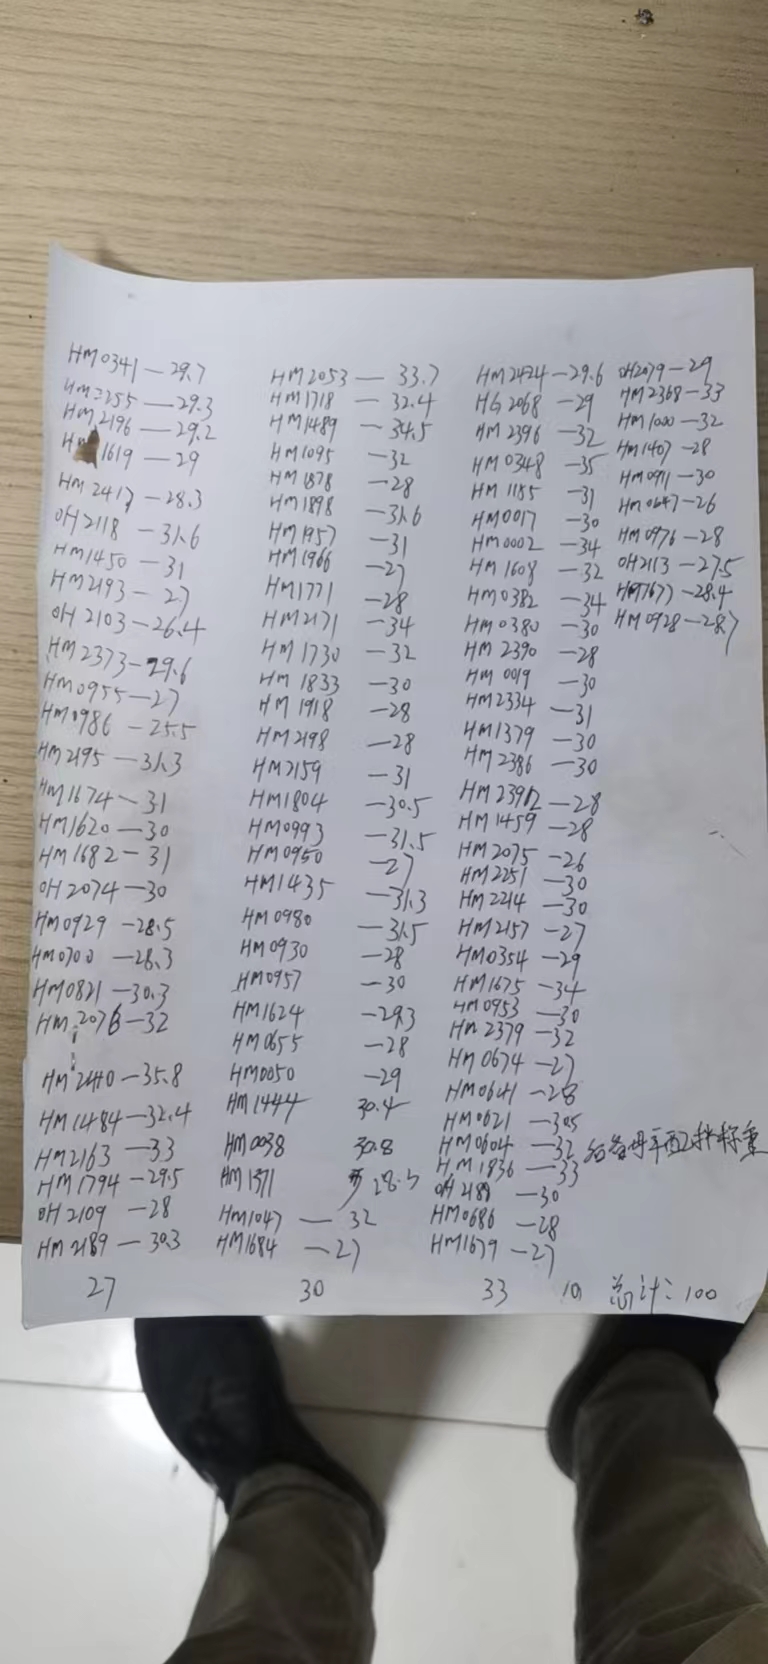 HM0341—29.7
HM2255—29.3
HM2196—29.2
HM1619—29
HM2417—28.3
OH2118—31.6
HM1450—31
HM2193—27
OH2103—26.4
HM2373—29.6
HM0955—27
HM0986—25.5
HM2195—31.3
HM1674—31
HM1620—30
HM1682—31
OH2074—30
HM0929—28.5
HM0700—28.3
HM0821—30.3
HM2076—32
HM2440—35.8
HM1484—32.4
HM2163—33
HM1794—29.5
OH2109—28
HM2189—30.3
27
HM2053—33.7
HM1718—32.4
HM1489—34.5
HM1095—32
HM1878—28
HM1898—31.6
HM1957—31
HM1966—27
HM1771—28
HM2171—34
HM1730—32
HM1833—30
HM1918—28
HM2198—28
HM2159—31
HM1804—30.5
HM0993—31.5
HM0950—27
HM1435—31.3
HM0980—31.5
HM0930—28
HM0957—30
HM1624—29.3
HM0655—28
HM0050—29
HM1444 30.4
HM0038 30.8
HM1371 28.5
HM1047—32
HM1684—27
30
HM2424—29.6
HG2068—29
HM2396—32
HM0348—35
HM1185—31
HM0017—30
HM0002—34
HM1608—32
HM0382—34
HM0380—30
HM2390—28
HM0019—30
HM2334—31
HM1379—30
HM2386—30
HM2392—28
HM1459—28
HM2075—26
HM2251—30
HM2214—30
HM2157—27
HM0354—29
HM1675—34
HM0953—30
HM2379—32
HM0674—27
HM0641—28
HM0621—30.5
HM0604—32
HM1836—33
OH2181—30
HM0686—28
HM1679—27
33
OH2079—29
HM2368—33
HM1000—32
HM1407—28
HM0911—30
HM0647—26
HM0976—28
OH2113—27.5
HM1677—28.4
HM0928—28.7
后备母羊配种称重
10 总计：100